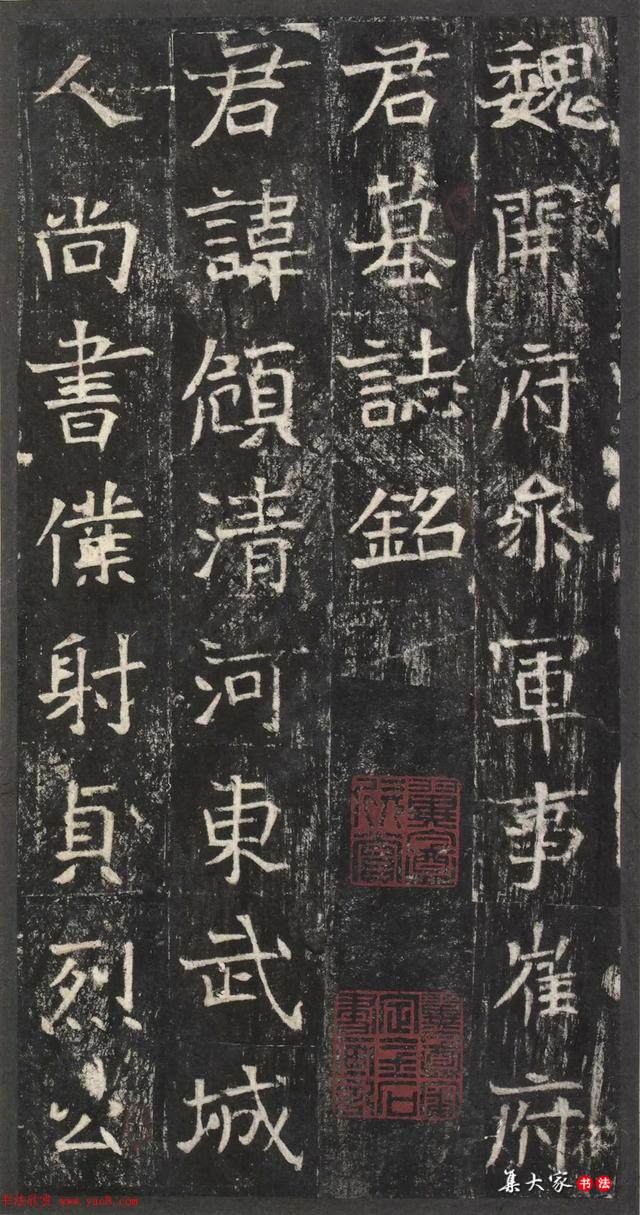 魏開府叅軍事崔府
君墓誌銘
君諱頠清河東武城
人尚書僕射貞烈公
集大家书法
书法欣赏 www.yac8.com